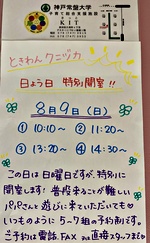 神戸常盤大学
KIT
ときわんクニヅカ
日よう日 特別開室!!
8月9日(日)
① 10:10〜 ② 11:20〜
③ 13:20〜 ④ 14:30〜
この日は日曜日ですが、特別に
開室します! 普段来ることが難しい
パパさんと遊びに来ていただいても♡
いつものように5〜7組の予約制です。
ご予約は電話、FAX
直接スタッフまで